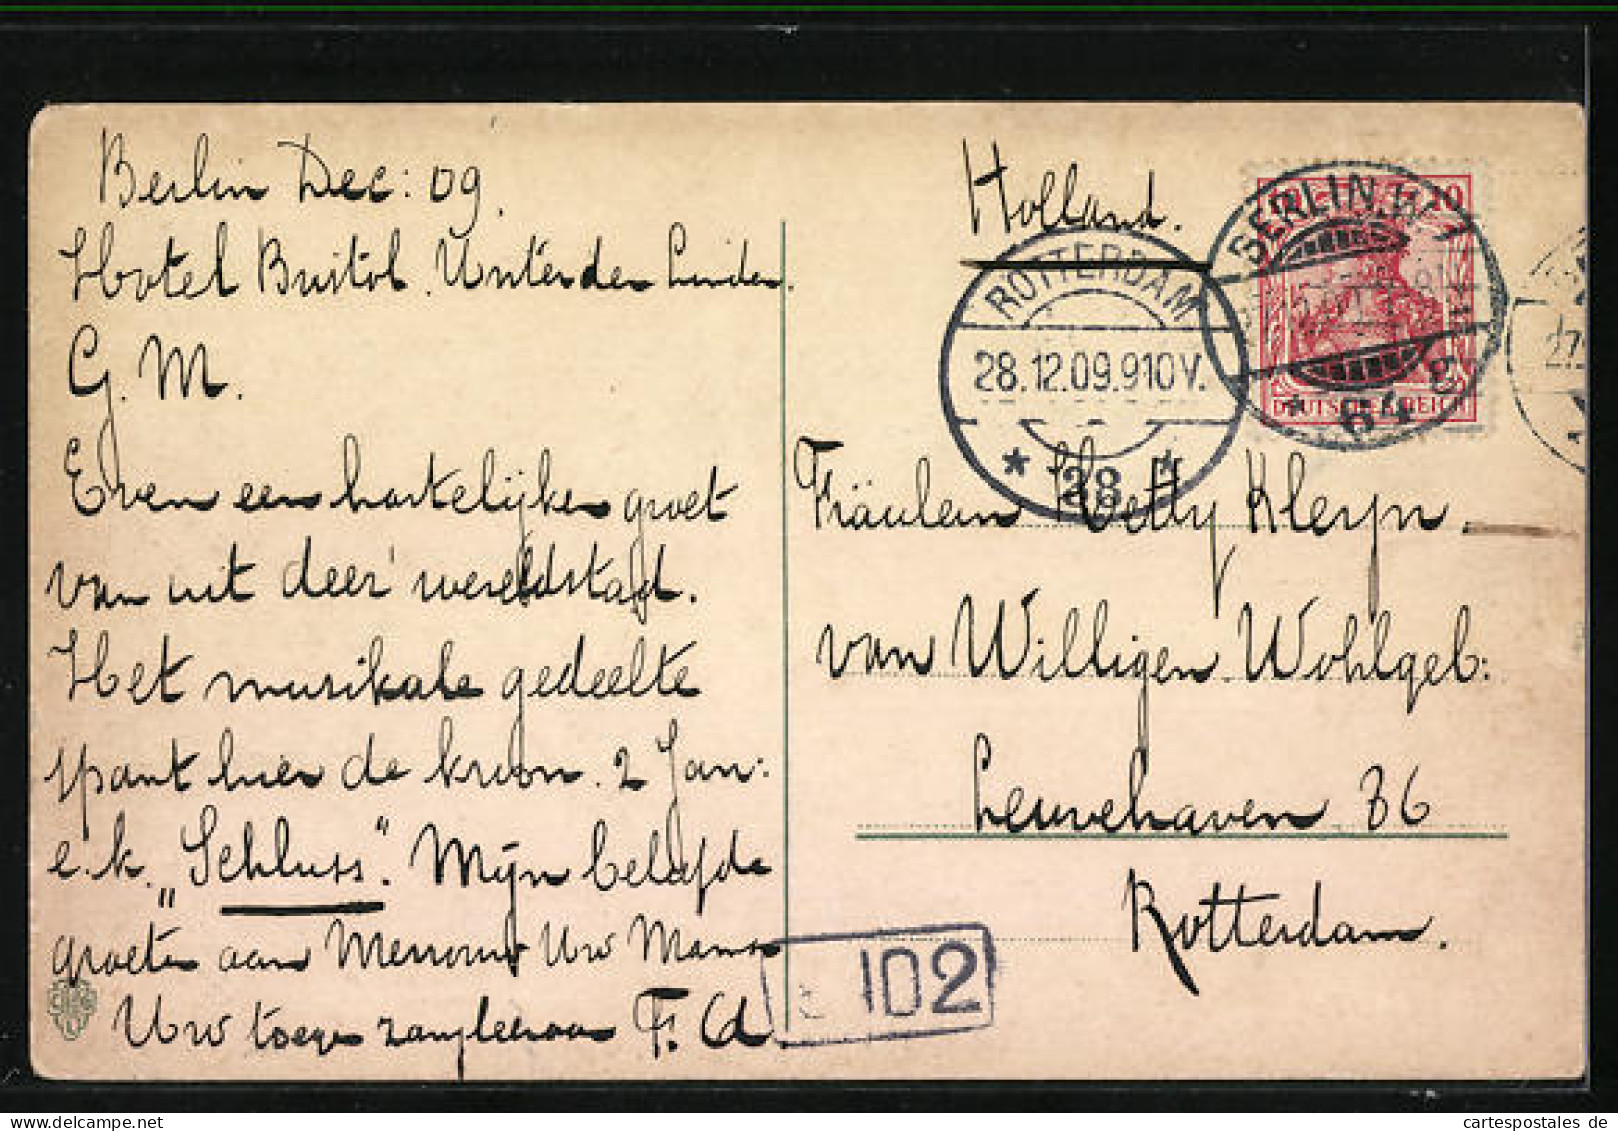 Berlin Dec: 09.
Hotel Bristol. Unter den Linden.
G. M.
Even een hartelijken groet
van uit deez' wereldstad.
Het muzikale gedeelte
spant hier de kroon. 2 Jan:
e.k. „Schluss". Mijn beleefde
groeten aan Mevrouw Uw Mama
Uw toegen zangleeraar F.
Holland.
BERLIN.W
64
DEUTSCHES REICH
10
ROTTERDAM
28.12.09.910V.
* 28 *
27.
Fräulein Hetty Kleyn
van Willigen. Wohlgeb:
Leuvehaven 36
Rotterdam.
102
cartespostales de